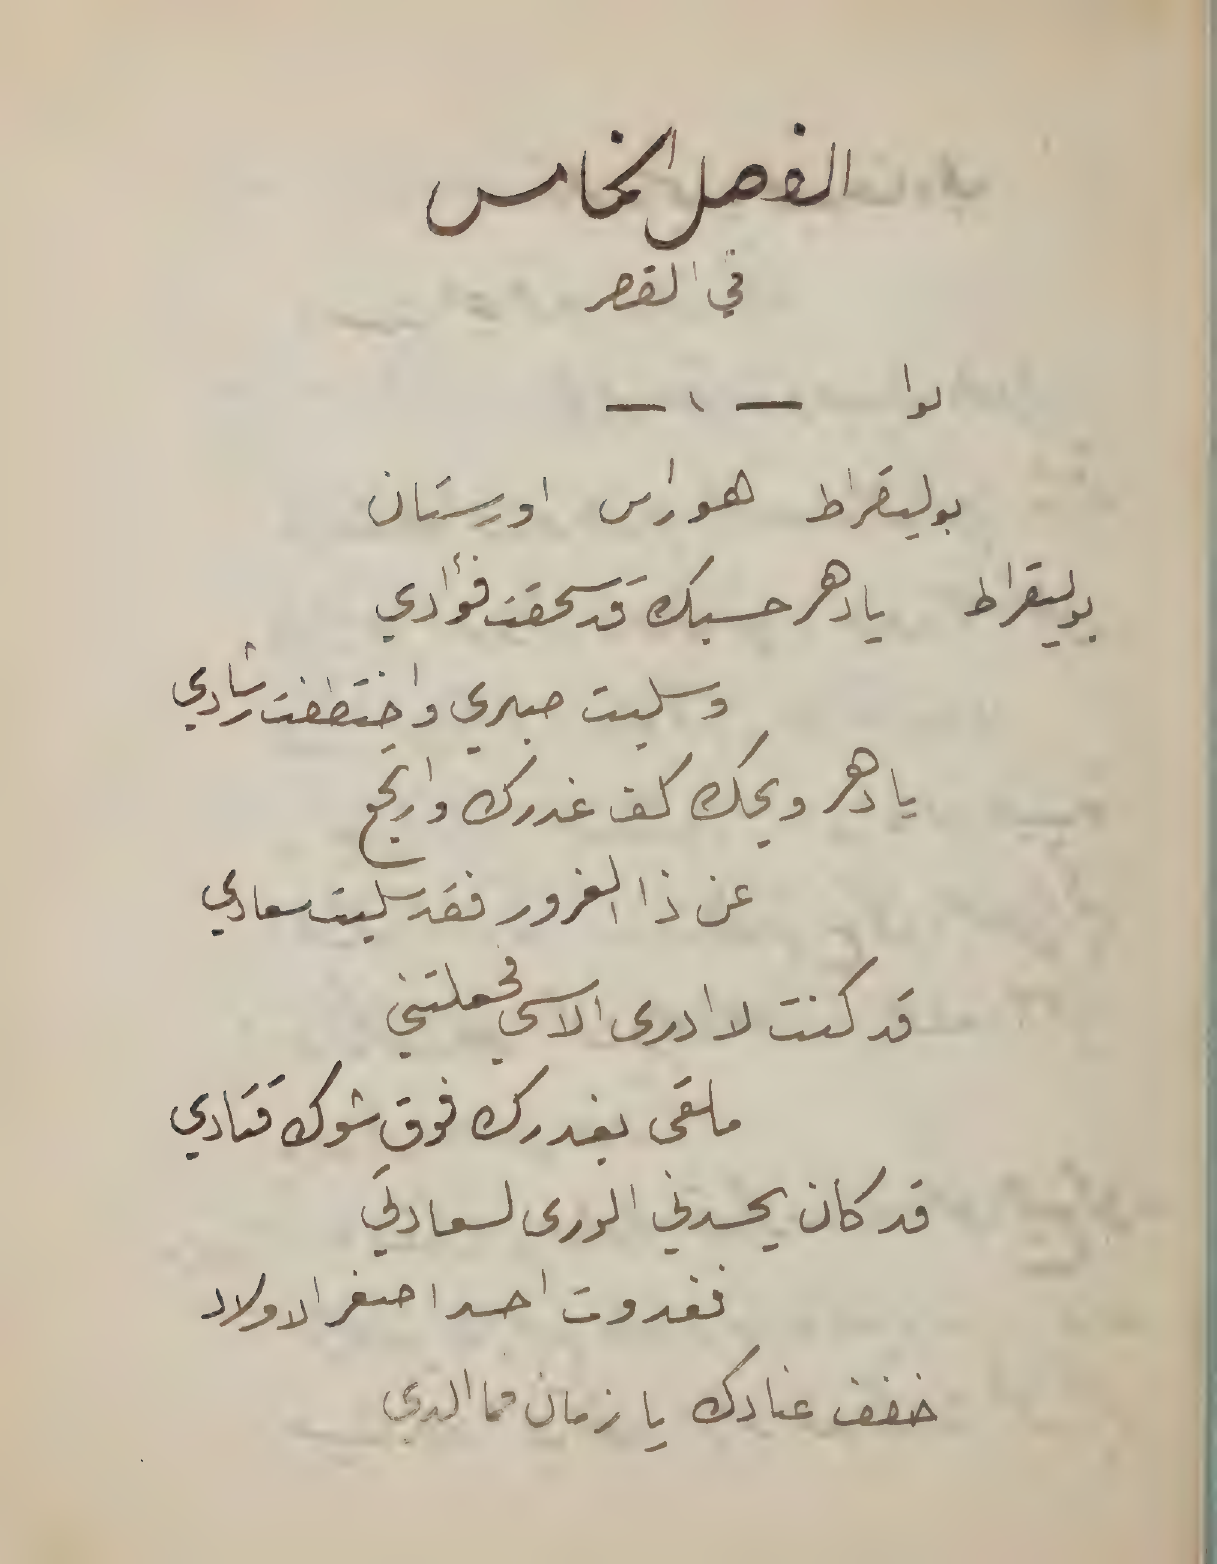 الفصل الخامس
في القصر
نوا — ١ —
بوليقراط هوراس اورستان
بوليقراط يا دهر حسبك قد سحقت فؤادي
وسلبت صبري واختطفت رشادي
يا دهر ويحك كف غدرك وارتجع
عن ذا الغرور فقد سلبت سعادي
قد كنت لا ادرى الاسى فجعلتني
ملقى بغدرك فوق شوك قتادي
قد كان يحسدني الورى لسعادتي
فغدوت احسد اصغر الاولاد
خفف عنادك يا زمان فما الذي